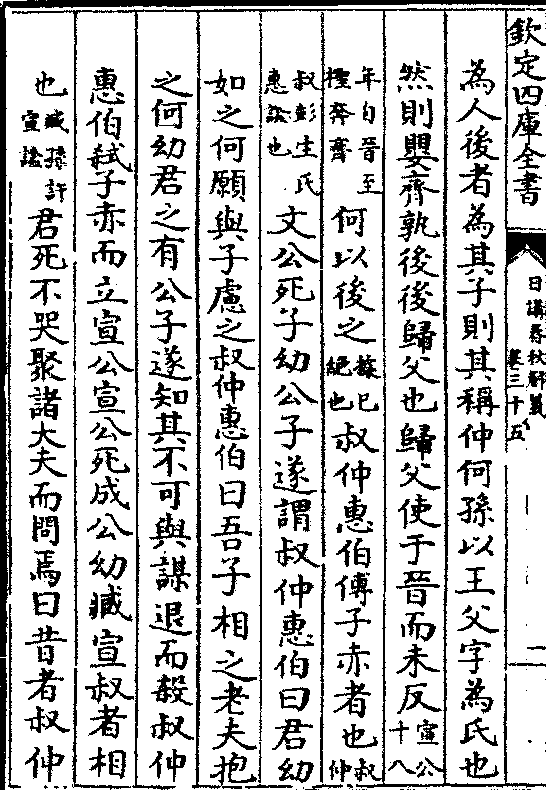 欽定四庫全書
日講春秋解義
卷三十五
一
為人後者為其子則其稱仲何孫以王父字為氏也
然則嬰齊孰後後歸父也歸父使于晉而未反宣公十八
年自晉至檉奔齊何以後之據已絕也叔仲惠伯傅子赤者也叔仲
叔彭生氏惠諡也文公死子幼公子遂謂叔仲惠伯曰君幼
如之何願與子慮之叔仲惠伯曰吾子相之老夫抱
之何幼君之有公子遂知其不可與謀退而殺叔仲
惠伯弒子赤而立宣公宣公死成公幼臧宣叔者相
也臧孫許宣諡君死不哭聚諸大夫而問焉曰昔者叔仲